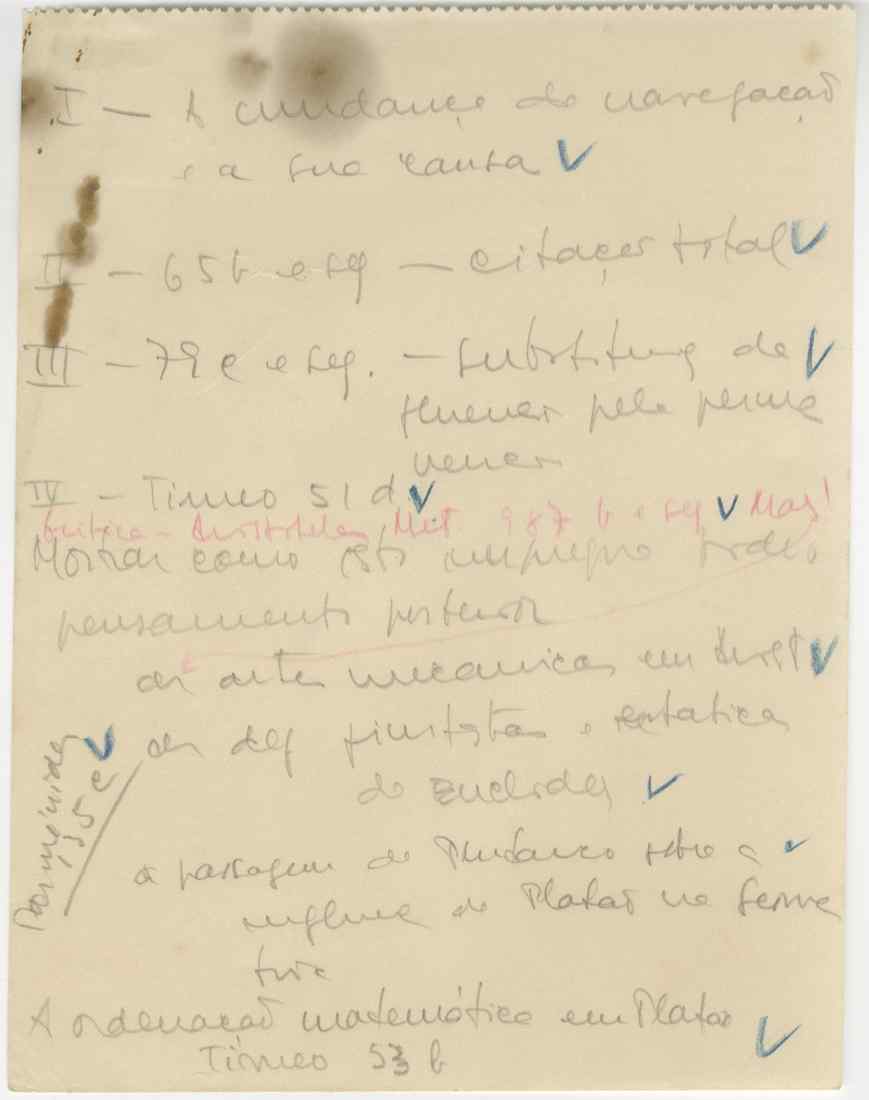 I — A mudança de navegação
e a sua causa
II — 65 b e seg — citações total
III — 79 e e seg. — substituiç do
fenener pela perma
nener
IV — Timeo 51 d
Critica - Aristoteles, Met. 987 b e seg Mas!
Mostrar como este emprego todo o
pensamento posterior
as artes mecanicas em Arist
as def finitistas e estatica
de Euclides
Parménides
135 c
a passagem de Plutarco sobre a
influe de Platão na Geome
tria
A ordenação matemática em Platão
Timeo 53 b